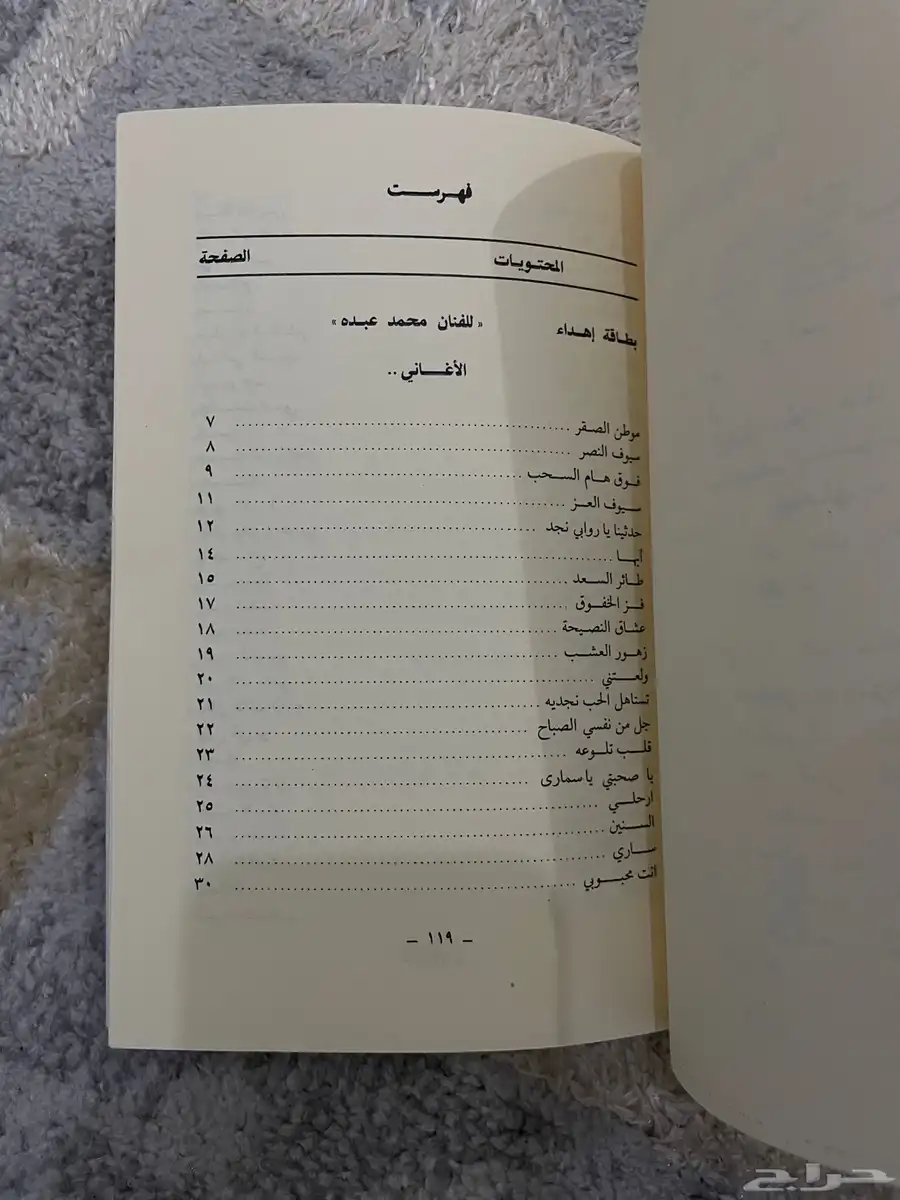 فهرست
المحتويات الصفحة
بطاقة إهداء « للفنان محمد عبده »
الأغاني ..
موطن الصقر ........ ٧
سيوف النصر ........ ٨
فوق هام السحب ........ ٩
سيوف العز ........ ١١
حدثينا يا روابي نجد ........ ١٢
أيها ........ ١٤
طائر السعد ........ ١٥
فز الخفوق ........ ١٧
عشاق النصيحة ........ ١٨
زهور العشب ........ ١٩
ولعتني ........ ٢٠
تستاهل الحب نجديه ........ ٢١
جل من نفسي الصباح ........ ٢٢
قلب تلوعه ........ ٢٣
يا صحبتي ياسمارى ........ ٢٤
ارحلي ........ ٢٥
السنين ........ ٢٦
ساري ........ ٢٨
انت محبوبي ........ ٣٠
– ١١٩ –
حراج